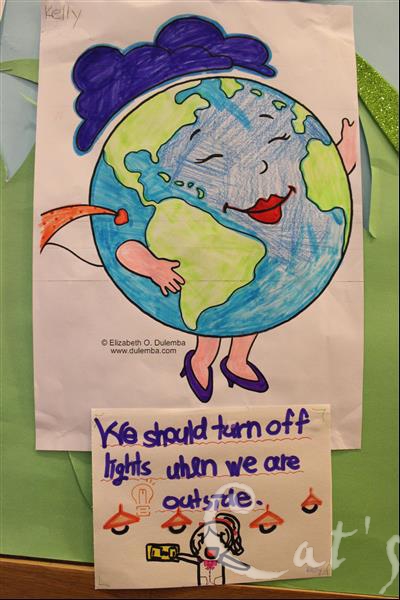 Kelly
© Elizabeth O. Dulemba
www.dulemba.com
We should turn off
lights when we are
outside.
Cat's